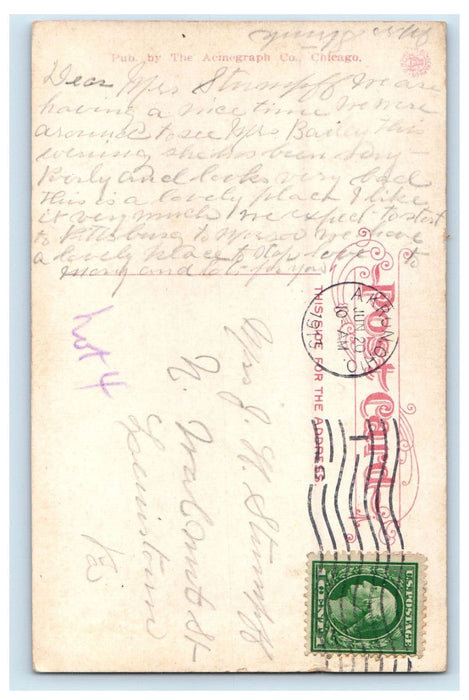 Pub. by The Acmegraph Co., Chicago.
Dear Mrs Stumpff We are
having a nice time we were
around to see Mrs Bailey this
evening she has been very
Porly and looks very bad
This is a lovely place I like
it very much we expect to start
to Pittsburg to morrow we have
a lovely place to stop love to
Mary and lots for you
Post Card
THIS SIDE FOR THE ADDRESS.
AKRON, OHIO
JUN 20
10 AM
1913
Lot 4
Mrs J. W. Stumpff
N. Walnut St
Lewistown
Pa
U.S. POSTAGE
1 CENT 1